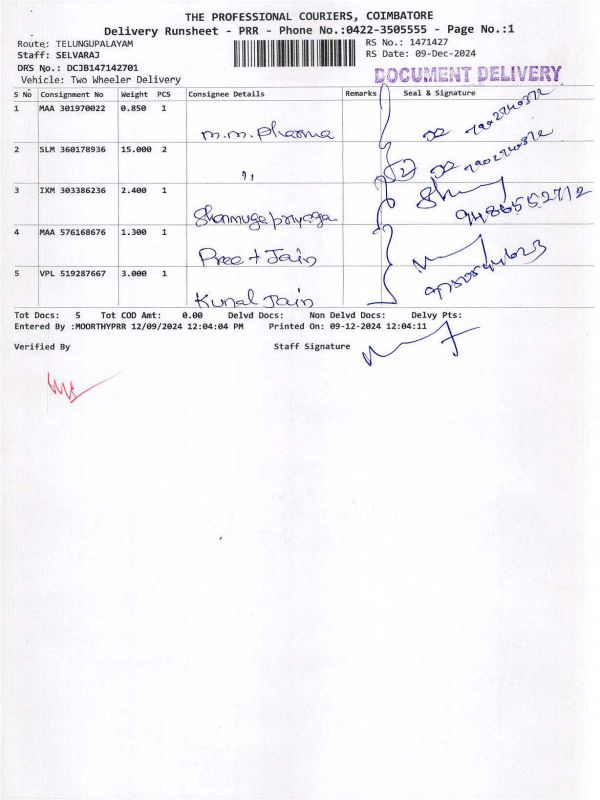 THE PROFESSIONAL COURIERS, COIMBATORE
Delivery Runsheet - PRR - Phone No.:0422-3505555 - Page No.:1
Route: TELUNGUPALAYAM RS No.: 1471427
Staff: SELVARAJ RS Date: 09-Dec-2024
DRS No.: DCJB147142701
Vehicle: Two Wheeler Delivery DOCUMENT DELIVERY
S No Consignment No Weight PCS Consignee Details Remarks Seal & Signature
1 MAA 301970022 0.850 1
m.m. pharma
2 SLM 360178936 15.000 2
,, 2
3 IXM 303386236 2.400 1
Shanmugapriyaga 9486552712
4 MAA 576168676 1.300 1
Preet Jain
5 VPL 519287667 3.000 1
Kunal Jain
Tot Docs: 5 Tot COD Amt: 0.00 Delvd Docs: Non Delvd Docs: Delvy Pts:
Entered By :MOORTHYPRR 12/09/2024 12:04:04 PM Printed On: 09-12-2024 12:04:11
Verified By Staff Signature